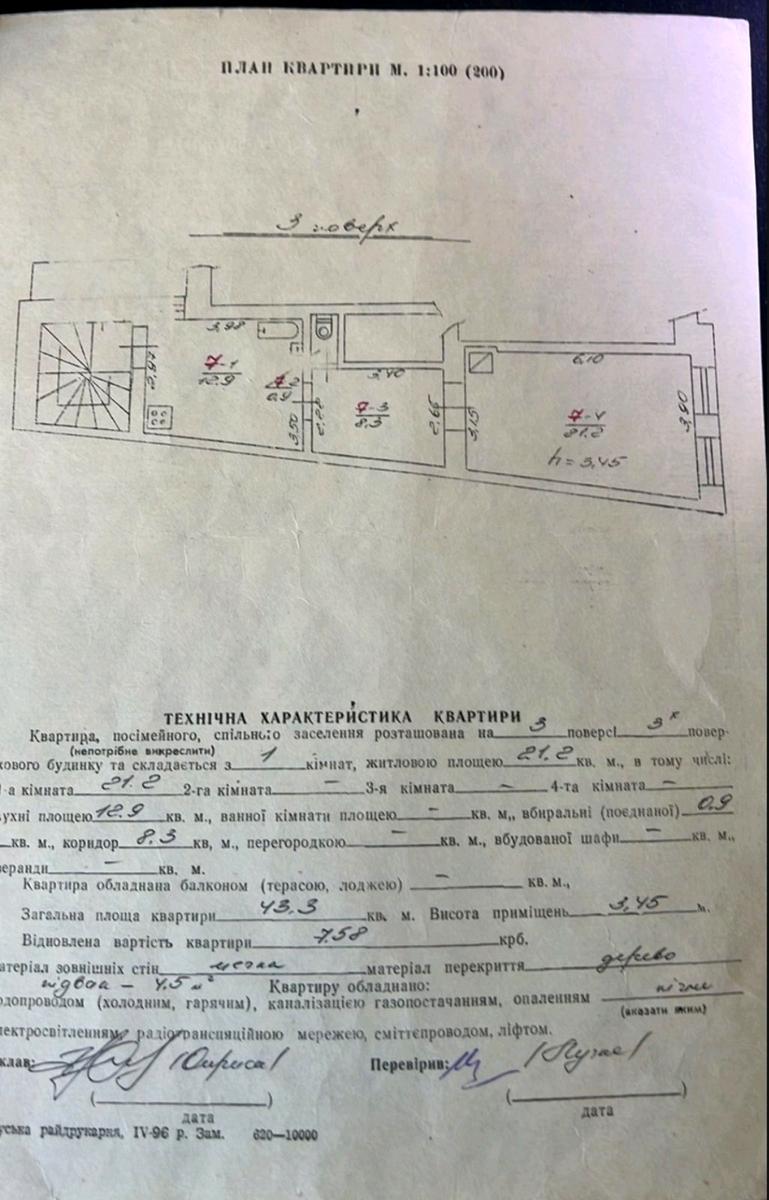 ПЛАН КВАРТИРИ М. 1:100 (200)
3 поверх
3,98
6,10
7-1
12.9
7-2
0,9
3,40
7-3
8,3
2,65
3,15
7-4
21.2
3,90
3,50
h = 3,45
ТЕХНІЧНА ХАРАКТЕРИСТИКА КВАРТИРИ
Квартира, посімейного, спільного заселення розташована на 3 поверсі 3х повер-
(непотрібне викреслити)
кового будинку та складається з 1 кімнат, житловою площею 21.2 кв. м., в тому числі:
1-а кімната 21.2 2-га кімната — 3-я кімната — 4-та кімната —
кухні площею 12.9 кв. м., ванної кімнати площею — кв. м,, вбиральні (поєднаної) 0,9
кв. м., коридор 8.3 кв, м., перегородкою — кв. м., вбудованої шафи — кв. м.,
веранди — кв. м.
Квартира обладнана балконом (терасою, лоджею) — кв. м.,
Загальна площа квартири 43.3 кв. м. Висота приміщень 3,45 м.
Відновлена вартість квартири 758 крб.
матеріал зовнішніх стін цегла матеріал перекриття дерево
підвал – 4.5 м² Квартиру обладнано:
одопроводом (холодним, гарячим), каналізацією газопостачанням, опаленням пічне
(вказати яким)
лектросвітленням, радіотрансляційною мережею, сміттєпроводом, ліфтом.
клав: Перевірив:
( ) ( )
дата дата
уська райдрукарня, IV-96 р. Зам. 620—10000